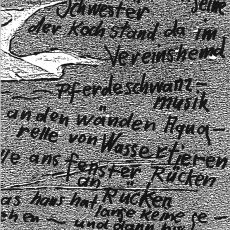 Schwester seine
der Koch stand da im
Vereinshemd
Pferdeschwanz-
musik
an den wänden Aqua-
relle von Wassertieren
ans fenster Rücken
an Rücken
das haus hat lange keine ge-
sehen — und dann